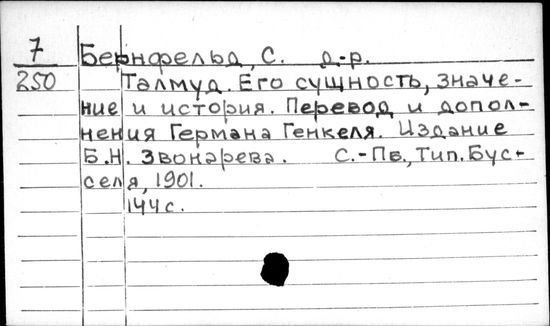 7
250
Бернфельд, С. д-р.
Талмуд. Его сущность, значе-
ние и история. Перевод и допол-
нения Германа Генкеля. Издание
Б.Н. Звонарева. С.-Пб., Тип. Бус-
селя, 1901.
144с.